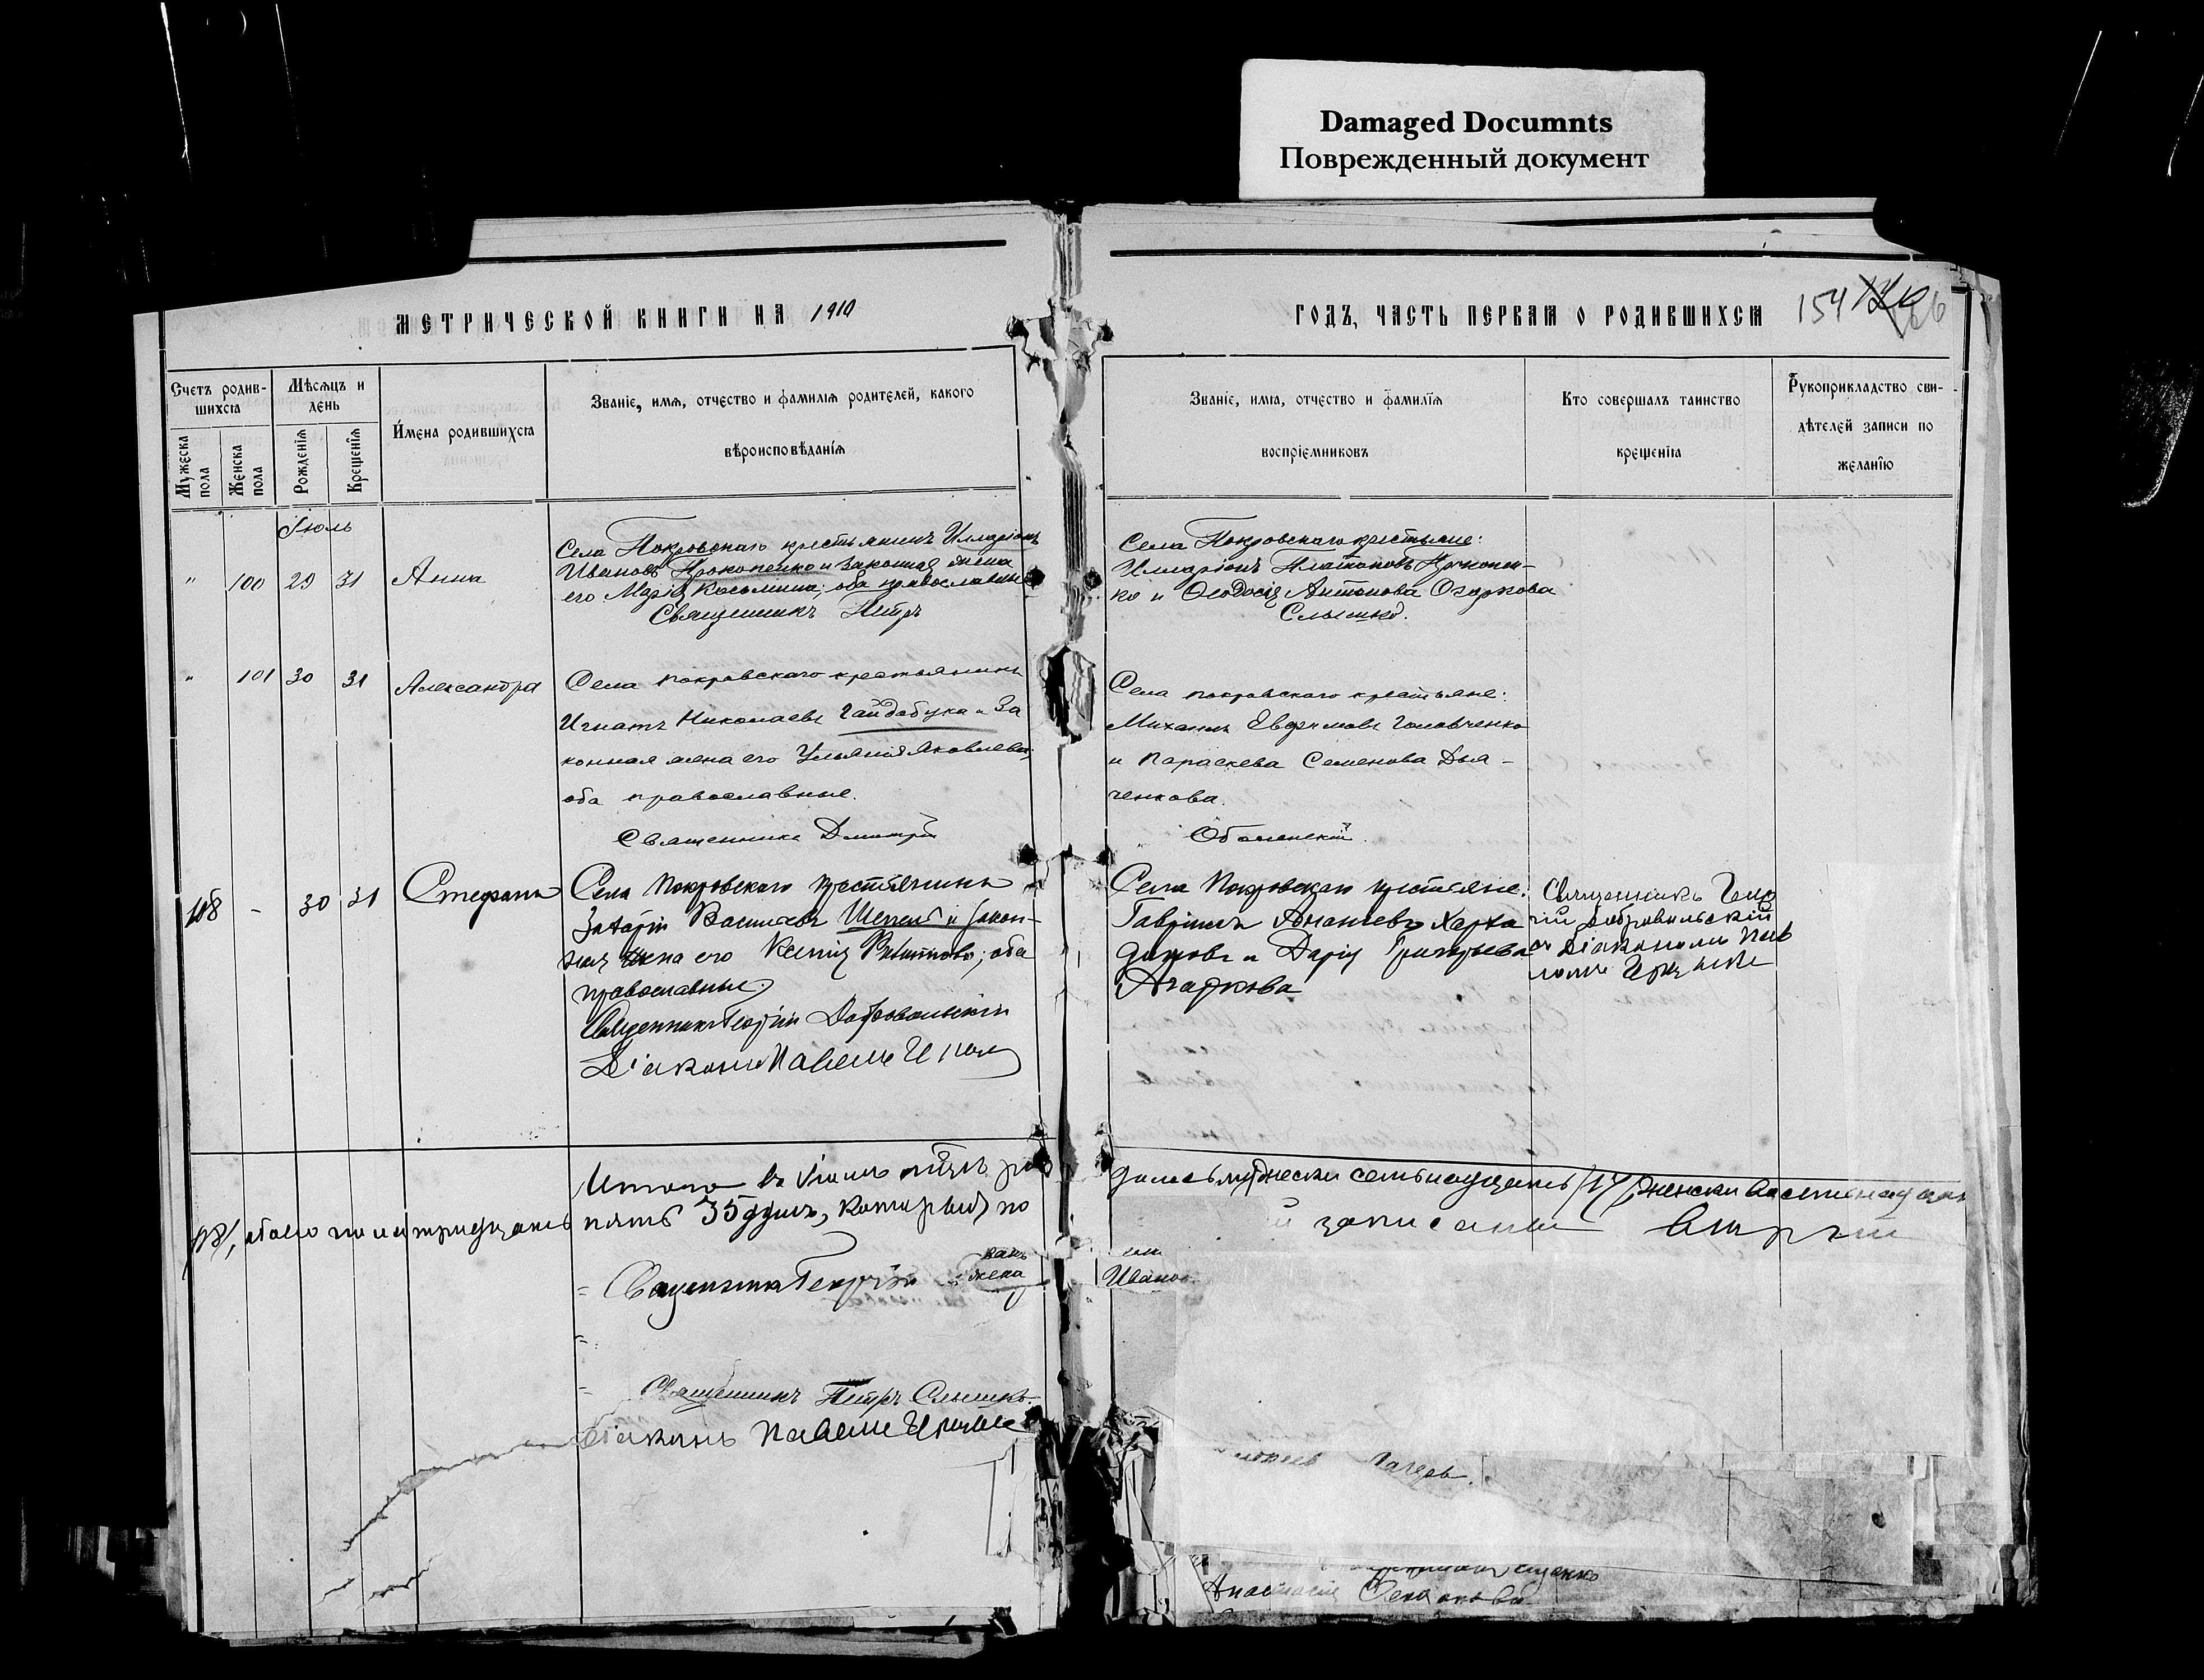 Damaged Documnts
Поврежденный документ
МЕТРИЧЕСКОЙ КНИГИ НА 1910
ГОДЪ, ЧАСТЬ ПЕРВАЯ О РОДИВШИХСЯ 154
Счетъ родив-
шихся
Мужеска
пола
Женска
пола
Мѣсяцъ и
день
Рожденія
Крещенія
Имена родившихся
Званіе, имя, отчество и фамилія родителей, какого
вѣроисповѣданія
Званіе, имя, отчество и фамилія
воспріемниковъ
Кто совершалъ таинство
крещенія
Рукоприкладство сви-
дѣтелей записи по
желанію
Іюль
" 100 29 31 Анна
Села Покровскаго крестьянинъ Илларіонъ
Ивановъ Прокопенко и законная жена
его Марія Косьмина; оба православные
Священникъ Петръ
Села Покровскаго крестьяне:
Илларіонъ Платоновъ Прокопен-
ко и Ѳеодосія Антонова Озаркова
Слышко.
" 101 30 31 Александра
Села Покровскаго крестьянинъ
Игнатъ Николаевъ Гайдабука и за
конная жена его Ульянія Яковлева;
оба православные.
Священникъ Дмитрій
Села Покровскаго крестьяне:
Михаилъ Евфимовъ Головченко
и Параскева Семенова Дья-
ченкова.
Оболенскій
108 - 30 31 Стефанъ
Села Покровскаго крестьянинъ
Захарій Васильевъ и закон-
ная жена его Ксенія; оба
православные
Священникъ Георгій Добровольскій
Діаконъ Павелъ
Села Покровскаго крестьяне:
Гавріилъ Ананіевъ
и Дарія Григорьева
Агаркова
Священникъ Геор
гій Добровольскій
съ Діакономъ Пав
ломъ
Итого въ Іюлѣ мѣсяцѣ ро
дилось мужески семьнадцать /17/, женски восемьнадцать
/18/, обоего пола тридцать пять 35 душъ, который по
записаны
Священникъ Георгій
жена
Иванов
Священникъ Петръ Слышко.
Діаконъ Павелъ
Анастасія